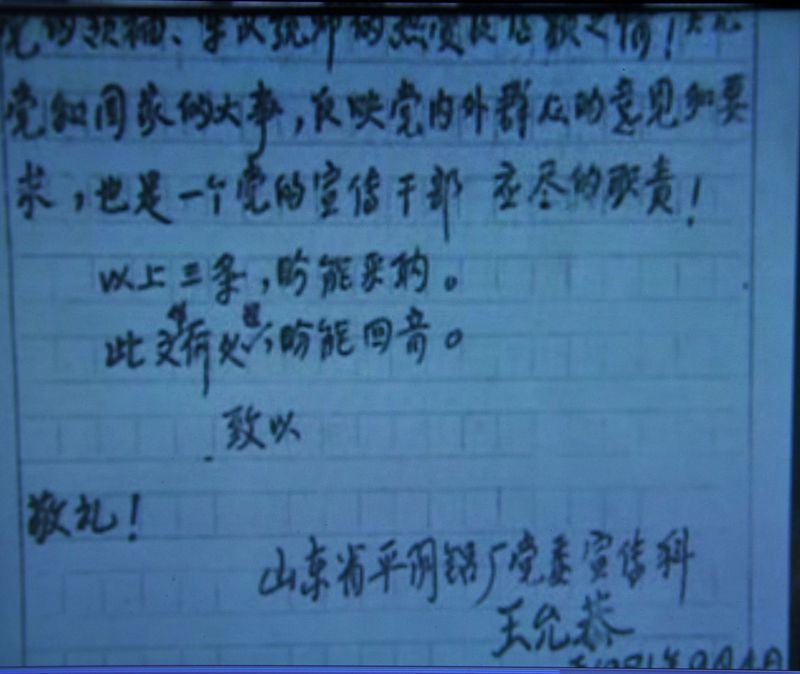 党的领袖、军队统帅的热爱
党和国家的大事,反映党内外群众的意见和要
求,也是一个党的宣传干部 应尽的职责!
以上三条,盼能采纳。
此文荷处,盼能回音。
致以
敬礼!
山东省平阴铝厂党委宣传科
王允恭